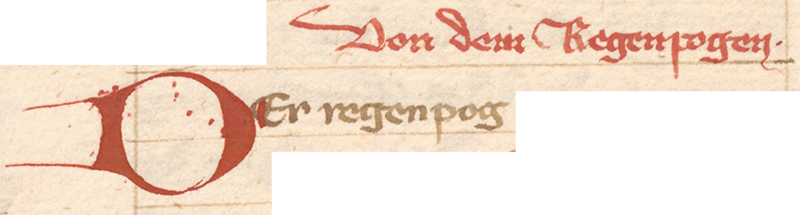 Von dem Regenpogen.
DEr regenpog